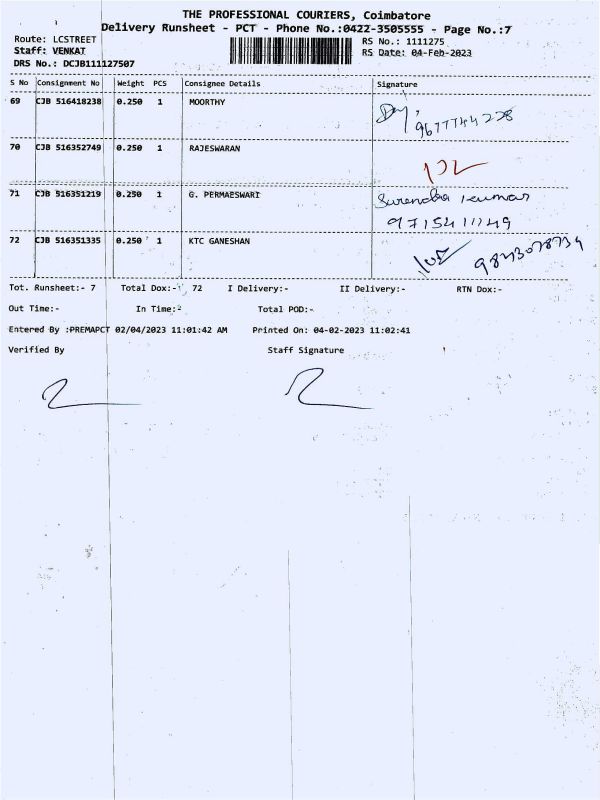 THE PROFESSIONAL COURIERS, Coimbatore
Delivery Runsheet - PCT - Phone No.:0422-3505555 - Page No.:7
Route: LCSTREET
Staff: VENKAT
DRS No.: DCJB111127507
RS No.: 1111275
RS Date: 04-Feb-2023
S No Consignment No Weight PCS Consignee Details Signature
69 CJB 516418238 0.250 1 MOORTHY
9677744228
70 CJB 516352749 0.250 1 RAJESWARAN
71 CJB 516351219 0.250 1 G. PERMAESWARI Surendra Kumar
9715411149
72 CJB 516351335 0.250 1 KTC GANESHAN
Tot. Runsheet:- 7 Total Dox:- 72 I Delivery:- II Delivery:- RTN Dox:-
Out Time:- In Time:- Total POD:-
Entered By :PREMAPCT 02/04/2023 11:01:42 AM Printed On: 04-02-2023 11:02:41
Verified By Staff Signature